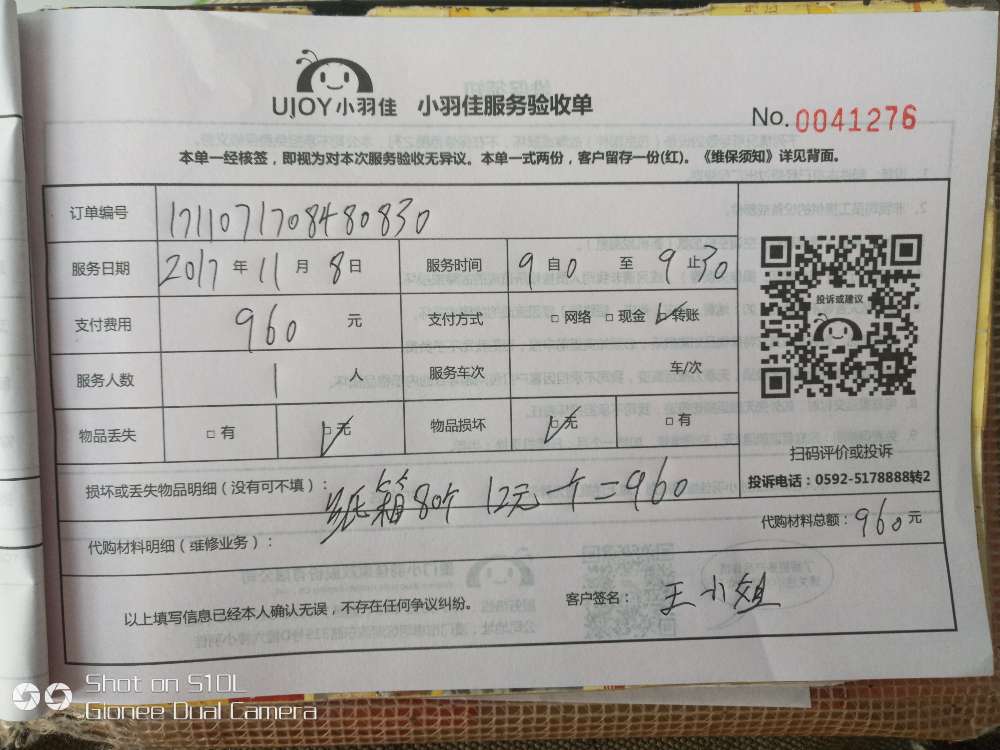 UJOY小羽佳 小羽佳服务验收单
No. 0041276
本单一经核签，即视为对本次服务验收无异议。本单一式两份，客户留存一份(红)。《维保须知》详见背面。
订单编号 1711071708480830
服务日期 2017年11月8日 服务时间 9自0至9止30
支付费用 960元 支付方式 □网络 □现金 ☑转账
投诉或建议
服务人数 1人 服务车次 车/次
物品丢失 □有 ☑无 物品损坏 ☑无 □有
扫码评价或投诉
投诉电话：0592-5178888转2
损坏或丢失物品明细（没有可不填）：
纸箱80个 12元一个=960
代购材料明细（维修业务）：
代购材料总额：960元
以上填写信息已经本人确认无误，不存在任何争议纠纷。 客户签名： 王小姐
Shot on S10L
Gionee Dual Camera